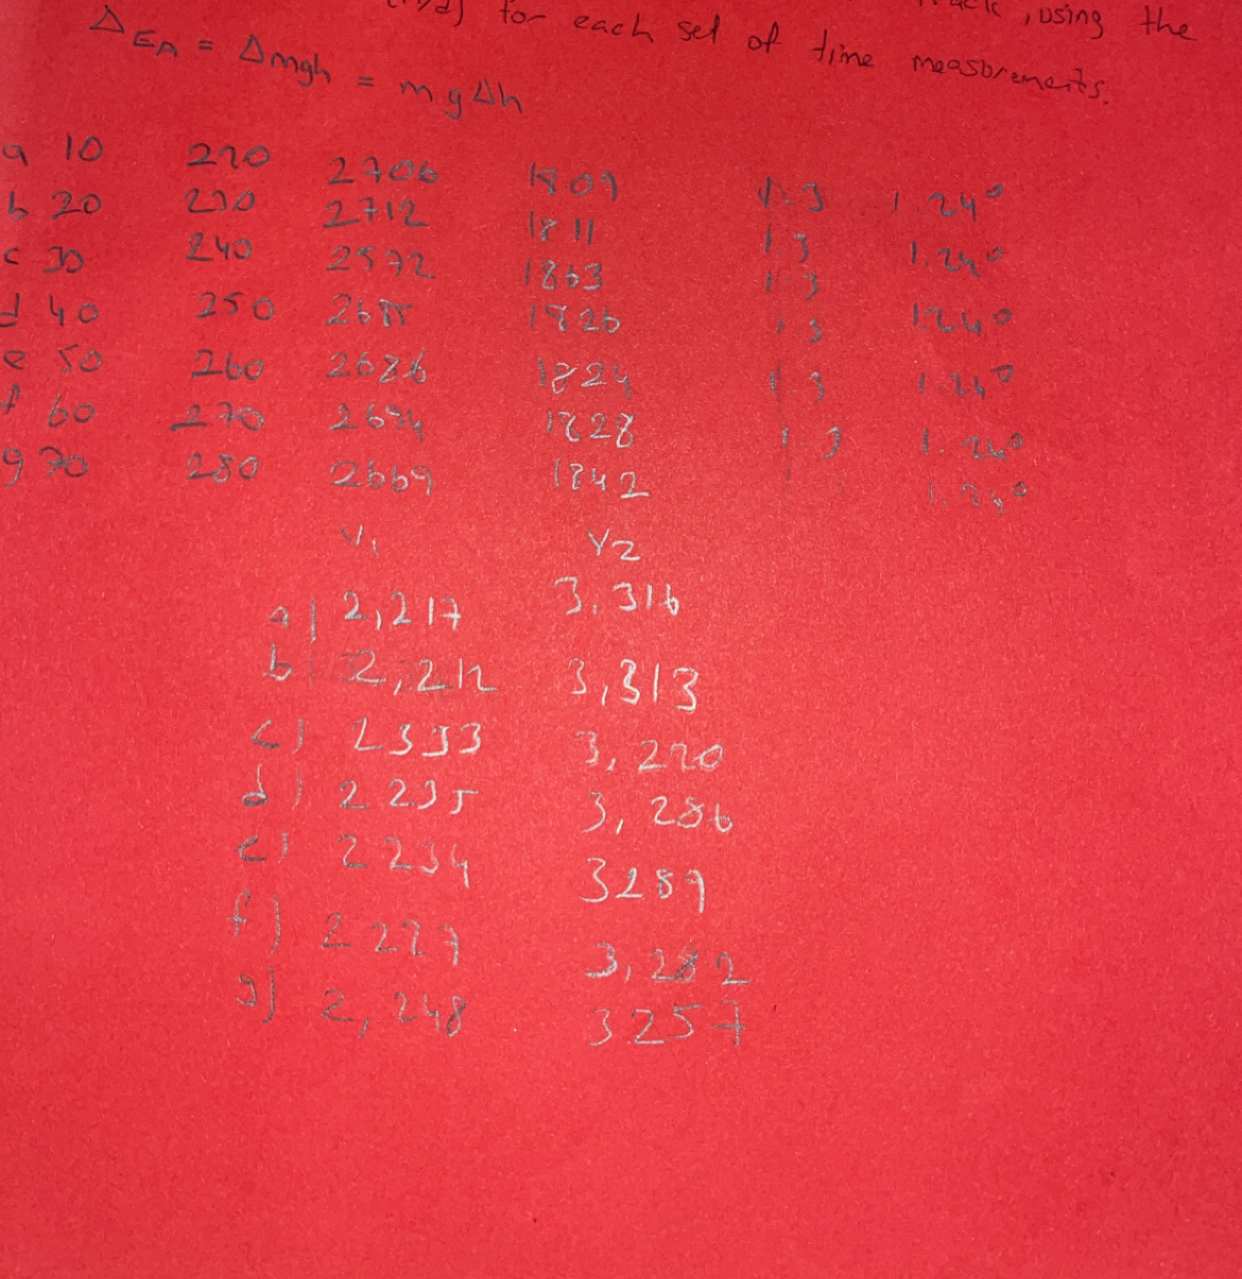 for each set of time measurements.
, using the
ΔEA = Δmgh = mgΔh
a 10 220 2706 1809 1.3 1.24°
b 20 230 2712 1811 1.3 1.24°
c 30 240 2572 1863 1.3 1.24°
d 40 250 2685 1826 1.3 1.24°
e 50 260 2686 1824 1.3 1.24°
f 60 270 2694 1828 1.3 1.24°
g 70 280 2669 1842
V1 V2
a) 2,217 3.316
b) 2,212 3,313
c) 2333 3,220
d) 2235 3,286
e) 2234 3289
f) 2227 3,282
g) 2,248 3257